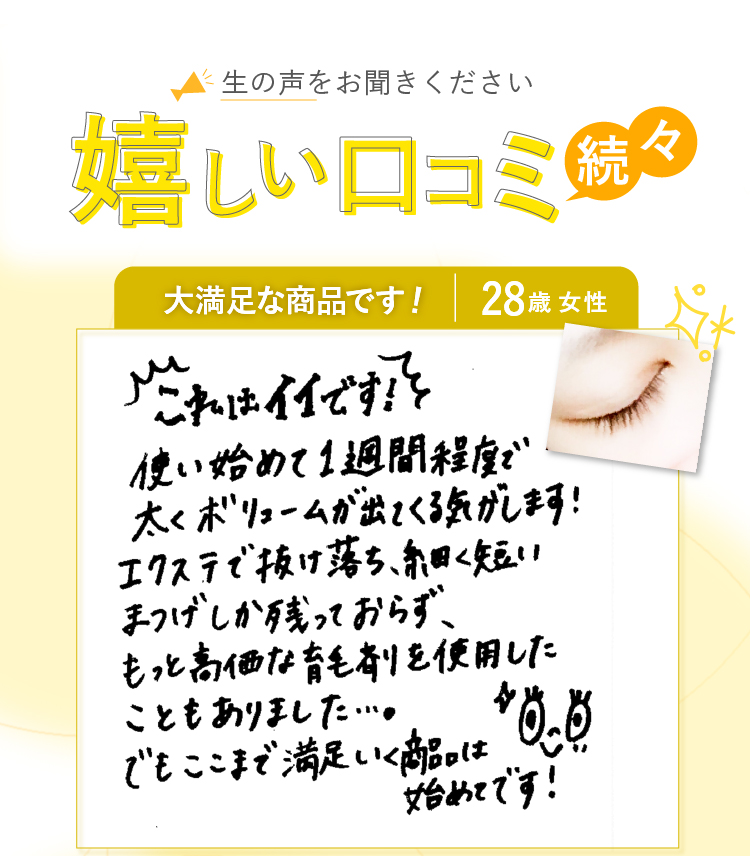 生の声をお聞きください
嬉しい口コミ続々
大満足な商品です！ 28歳 女性
これはイイです!
使い始めて1週間程度で
太くボリュームが出てくる気がします!
エクステで抜け落ち、細く短い
まつげしか残っておらず、
もっと高価な育毛剤を使用した
こともありました…。
でもここまで満足いく商品は
始めてです!